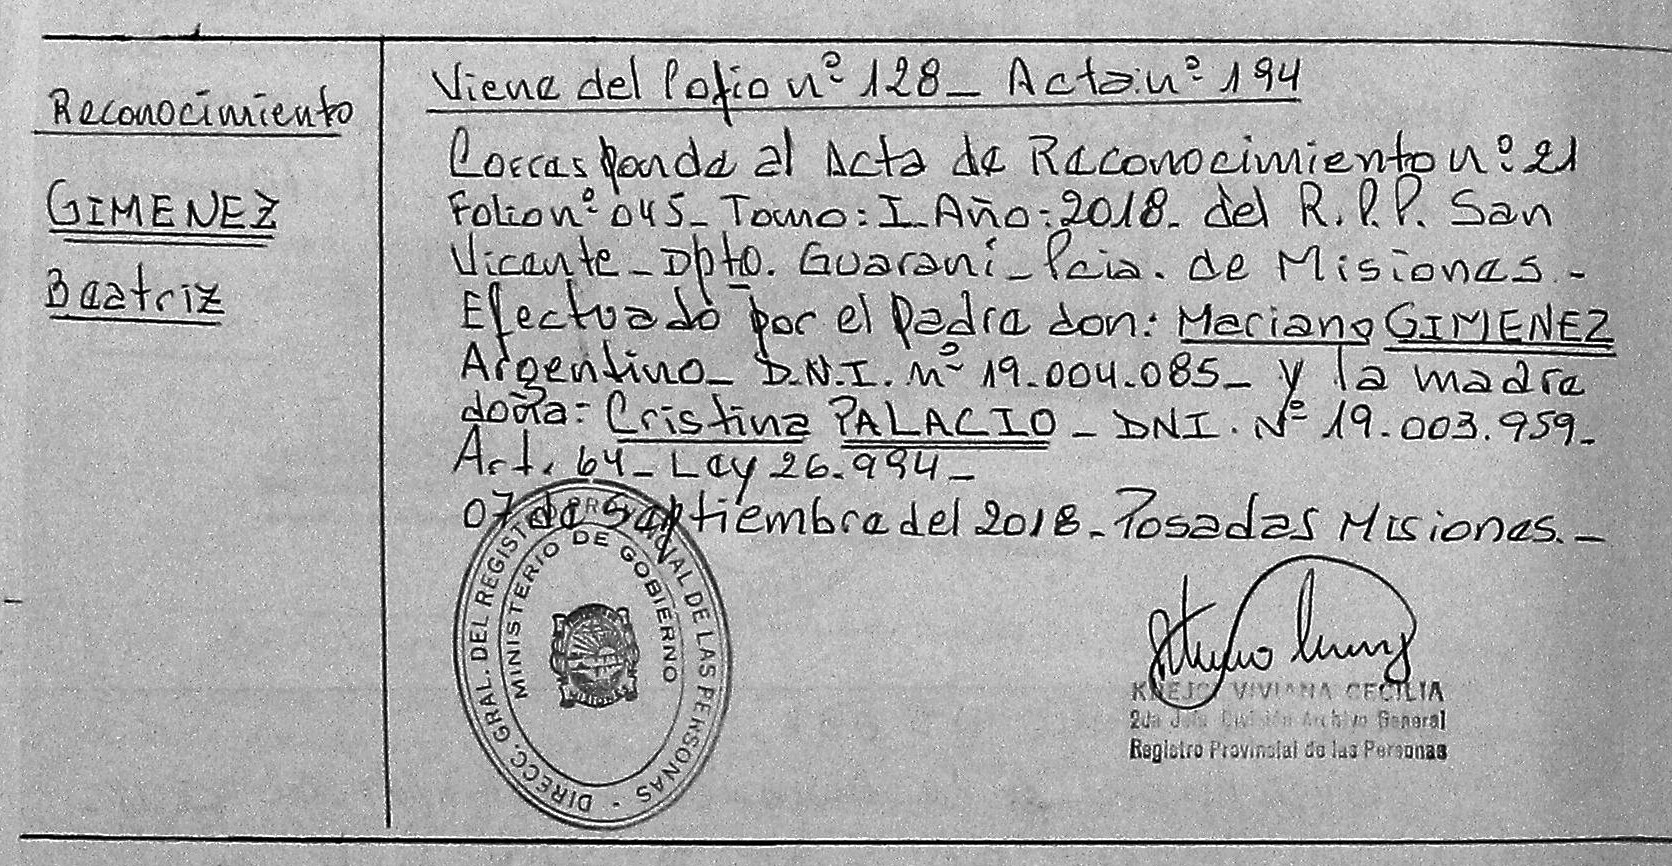 Reconocimiento
GIMENEZ
Beatriz
Viene del Folio nº 128_ Acta: nº 194
Corresponde al Acta de Reconocimiento nº 21
Folio nº 045_ Tomo: I_ Año: 2018_ del R.P.P. San
Vicente_ Dpto. Guaraní_ Pcia. de Misiones._
Efectuado por el padre don: Mariano GIMENEZ
Argentino_ D.N.I. nº 19.004.085_ y la madre
doña: Cristina PALACIO_ DNI. Nº 19.003.959_
Art. 64_ Ley 26.994_
07 de Septiembre del 2018_ Posadas Misiones._
DIRECC. GRAL. DEL REGISTRO PROVINCIAL DE LAS PERSONAS -
MINISTERIO DE GOBIERNO
VIVIANA CECILIA
2da Jefa División Archivo General
Registro Provincial de las Personas